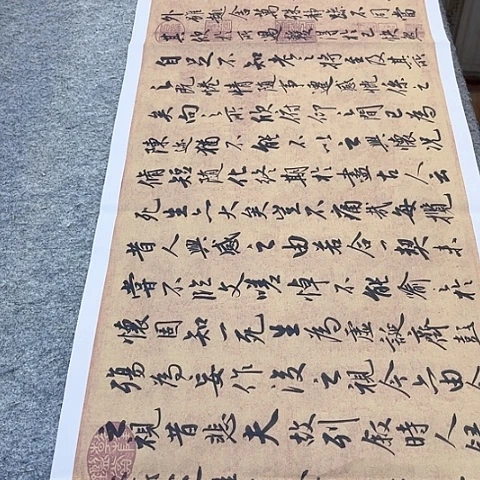 外雖趣舍萬殊靜躁不同當
其欣於所遇暫得於己快然
自足不知老之將至及其所
之既惓情隨事遷感慨係之
矣向之所欣俛仰之間已為
陳迹猶不能不以之興懷況
脩短隨化終期於盡古人云
死生亦大矣豈不痛哉每攬
昔人興感之由若合一契未
嘗不臨文嗟悼不能喻之於
懷固知一死生為虛誕齊彭
殤為妄作後之視今亦由今
之視昔悲夫故列敘時人